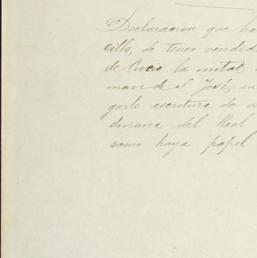 Declaracion que ha
cillo, de tener vendid
de Cucio la mitad
man de el José, en
garle escritura de
dinaria del Real
como haya papel